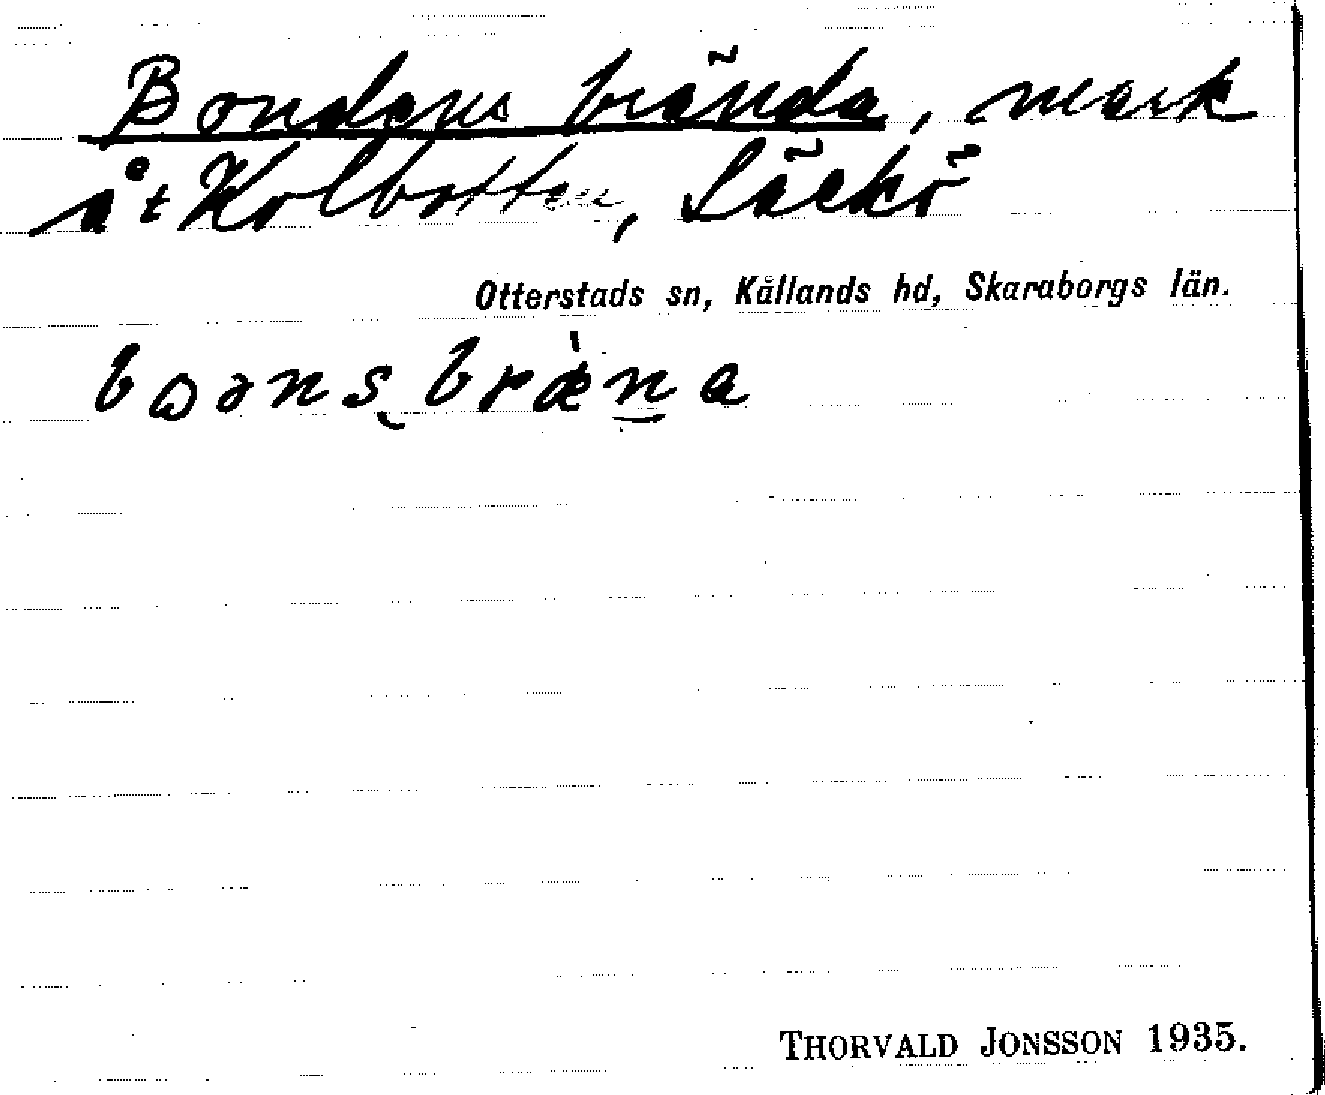 Bondens brända, mark
åt Kolbotten, Läckö
Otterstads sn, Kållands hd, Skaraborgs län.
THORVALD JONSSON 1935.